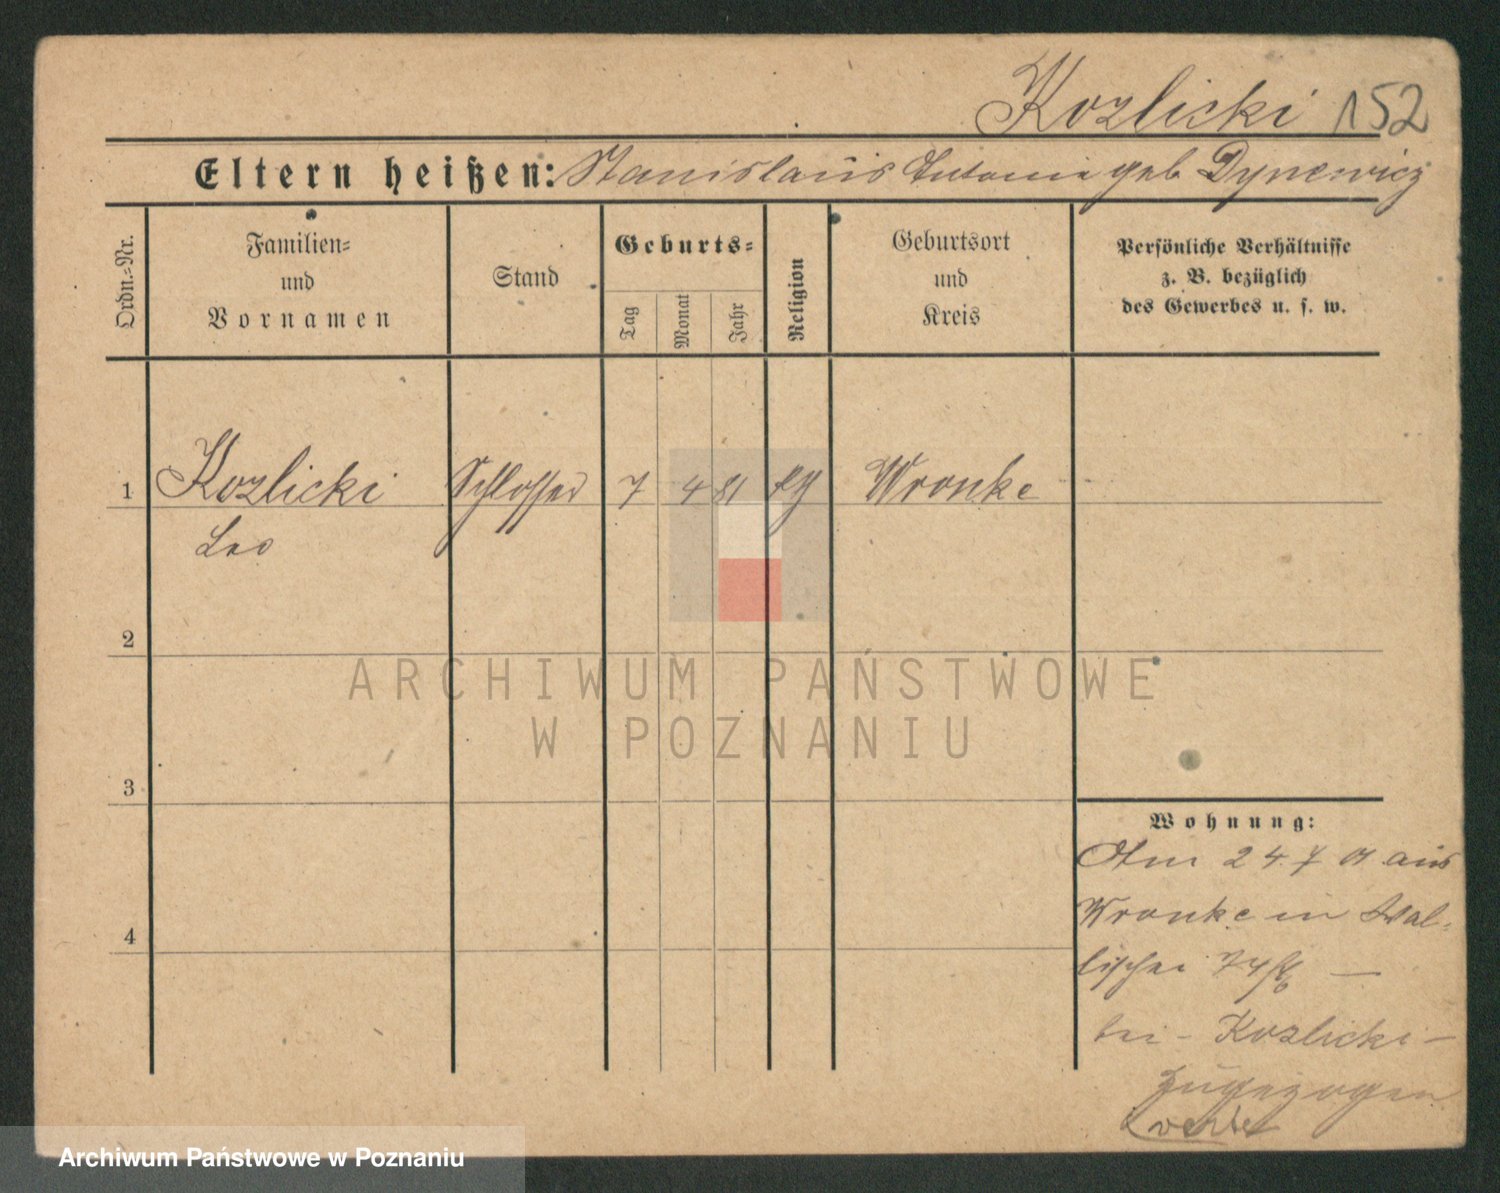 Kozlicki 152
Eltern heißen: Stanislaus Antonie geb Dynewicz
Ordn.-Nr.
Familien-
und
Vornamen
Stand
Geburts-
Tag
Monat
Jahr
Religion
Geburtsort
und
Kreis
Persönliche Verhältnisse
z. B. bezüglich
des Gewerbes u. s. w.
1 Kozlicki Schlosser 7 4 81 Wronke
Leo
2
3
4
Wohnung:
Am 24.7 01 aus
Wronke in Wal-
lischei 74
bei - Kozlicki -
zugezogen
ARCHIWUM PAŃSTWOWE
W POZNANIU
Archiwum Państwowe w Poznaniu